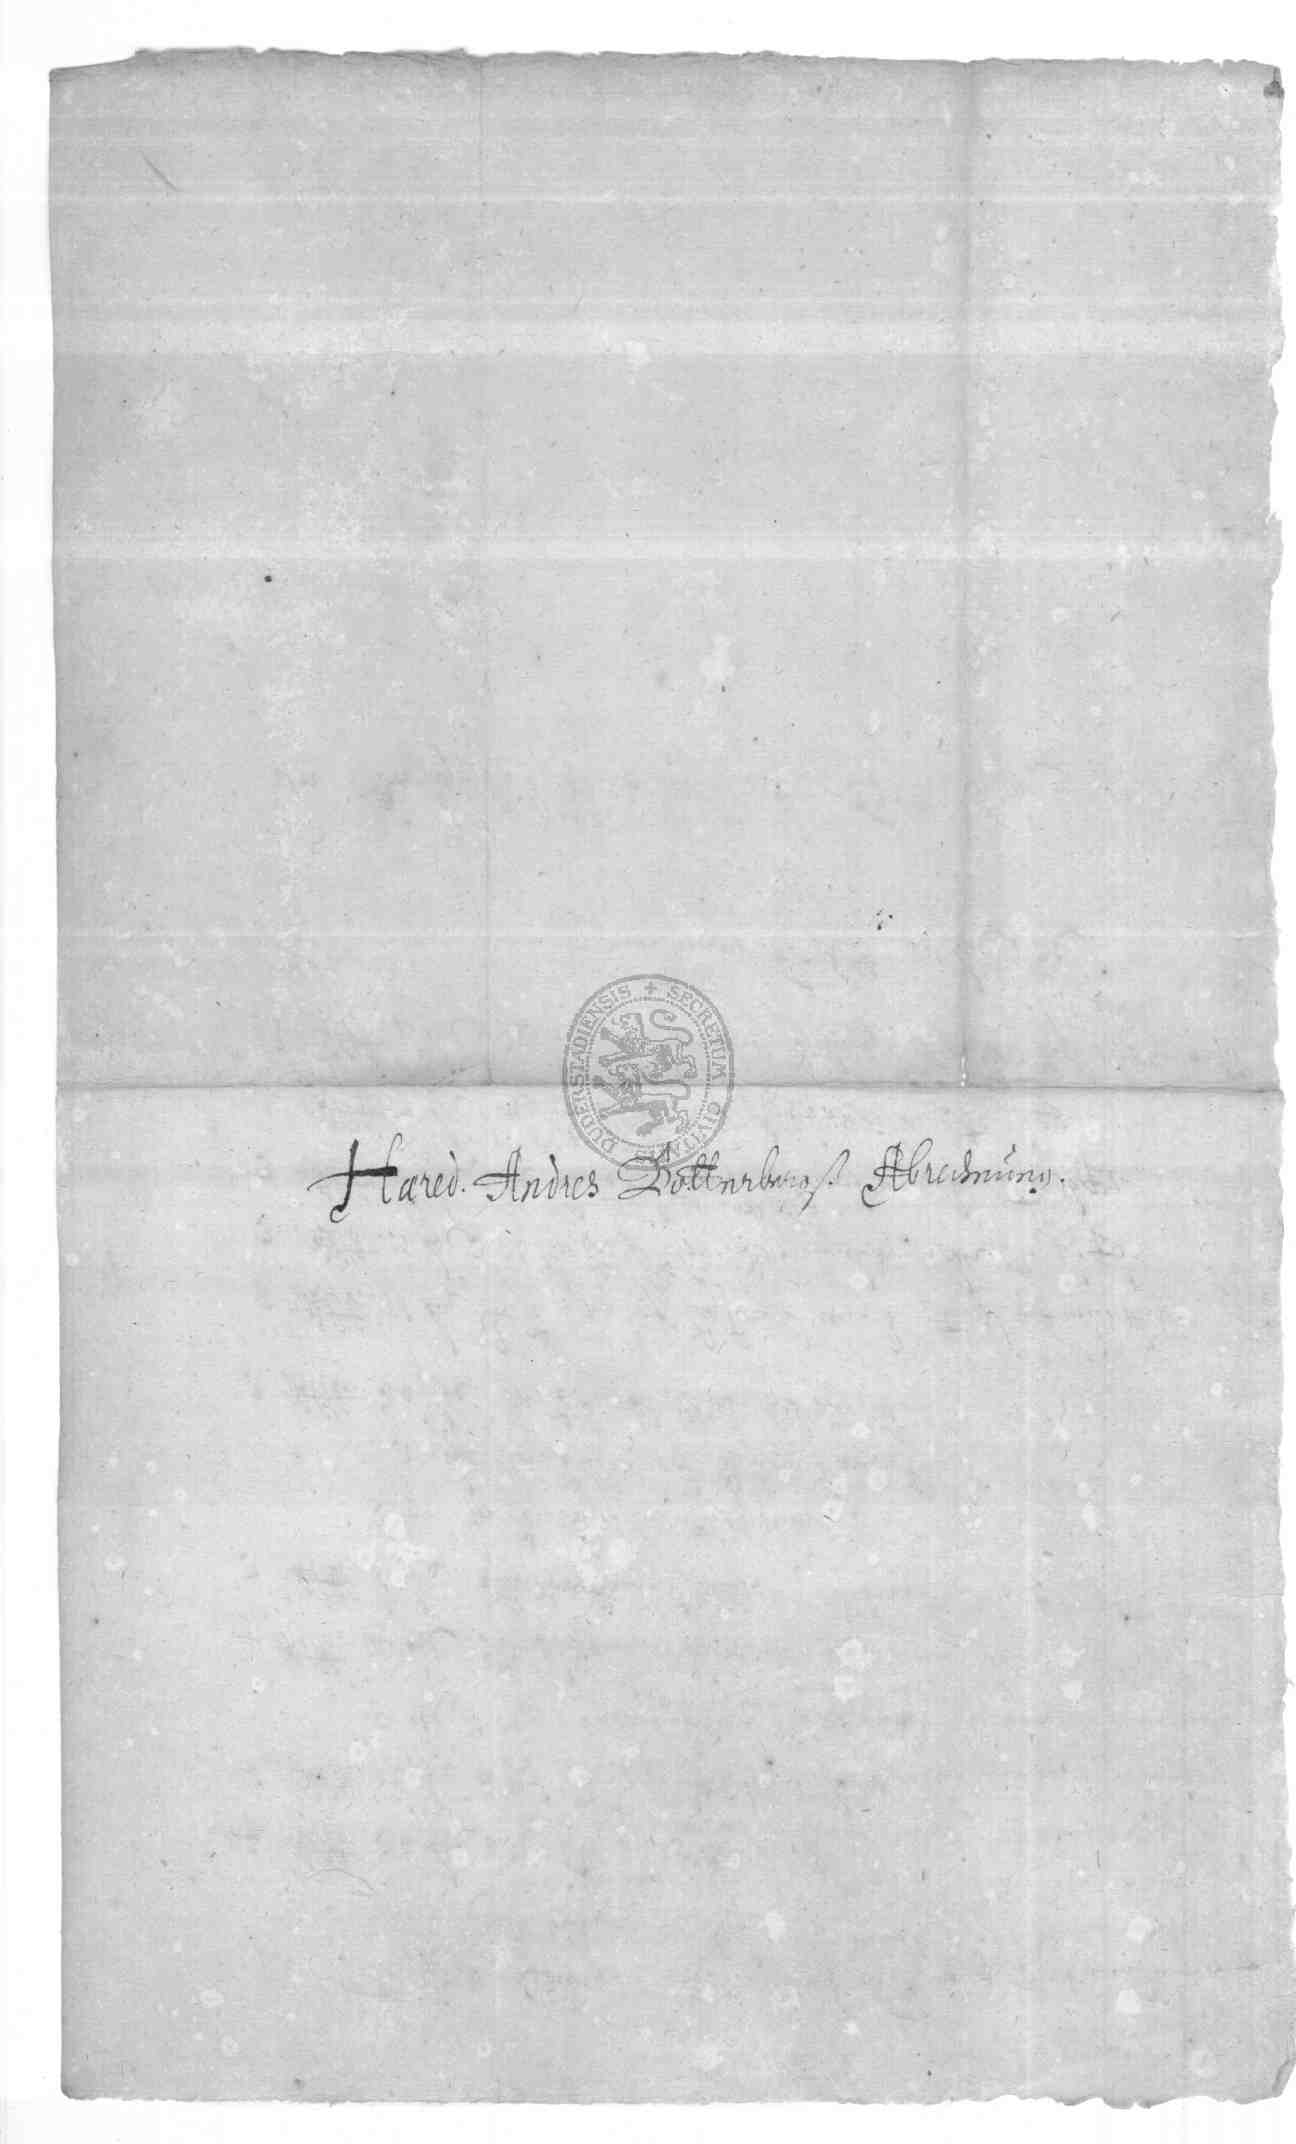 DUDERSTADIENSIS + SECRETUM CIVITA
Hæred. Andres Abrechnung.